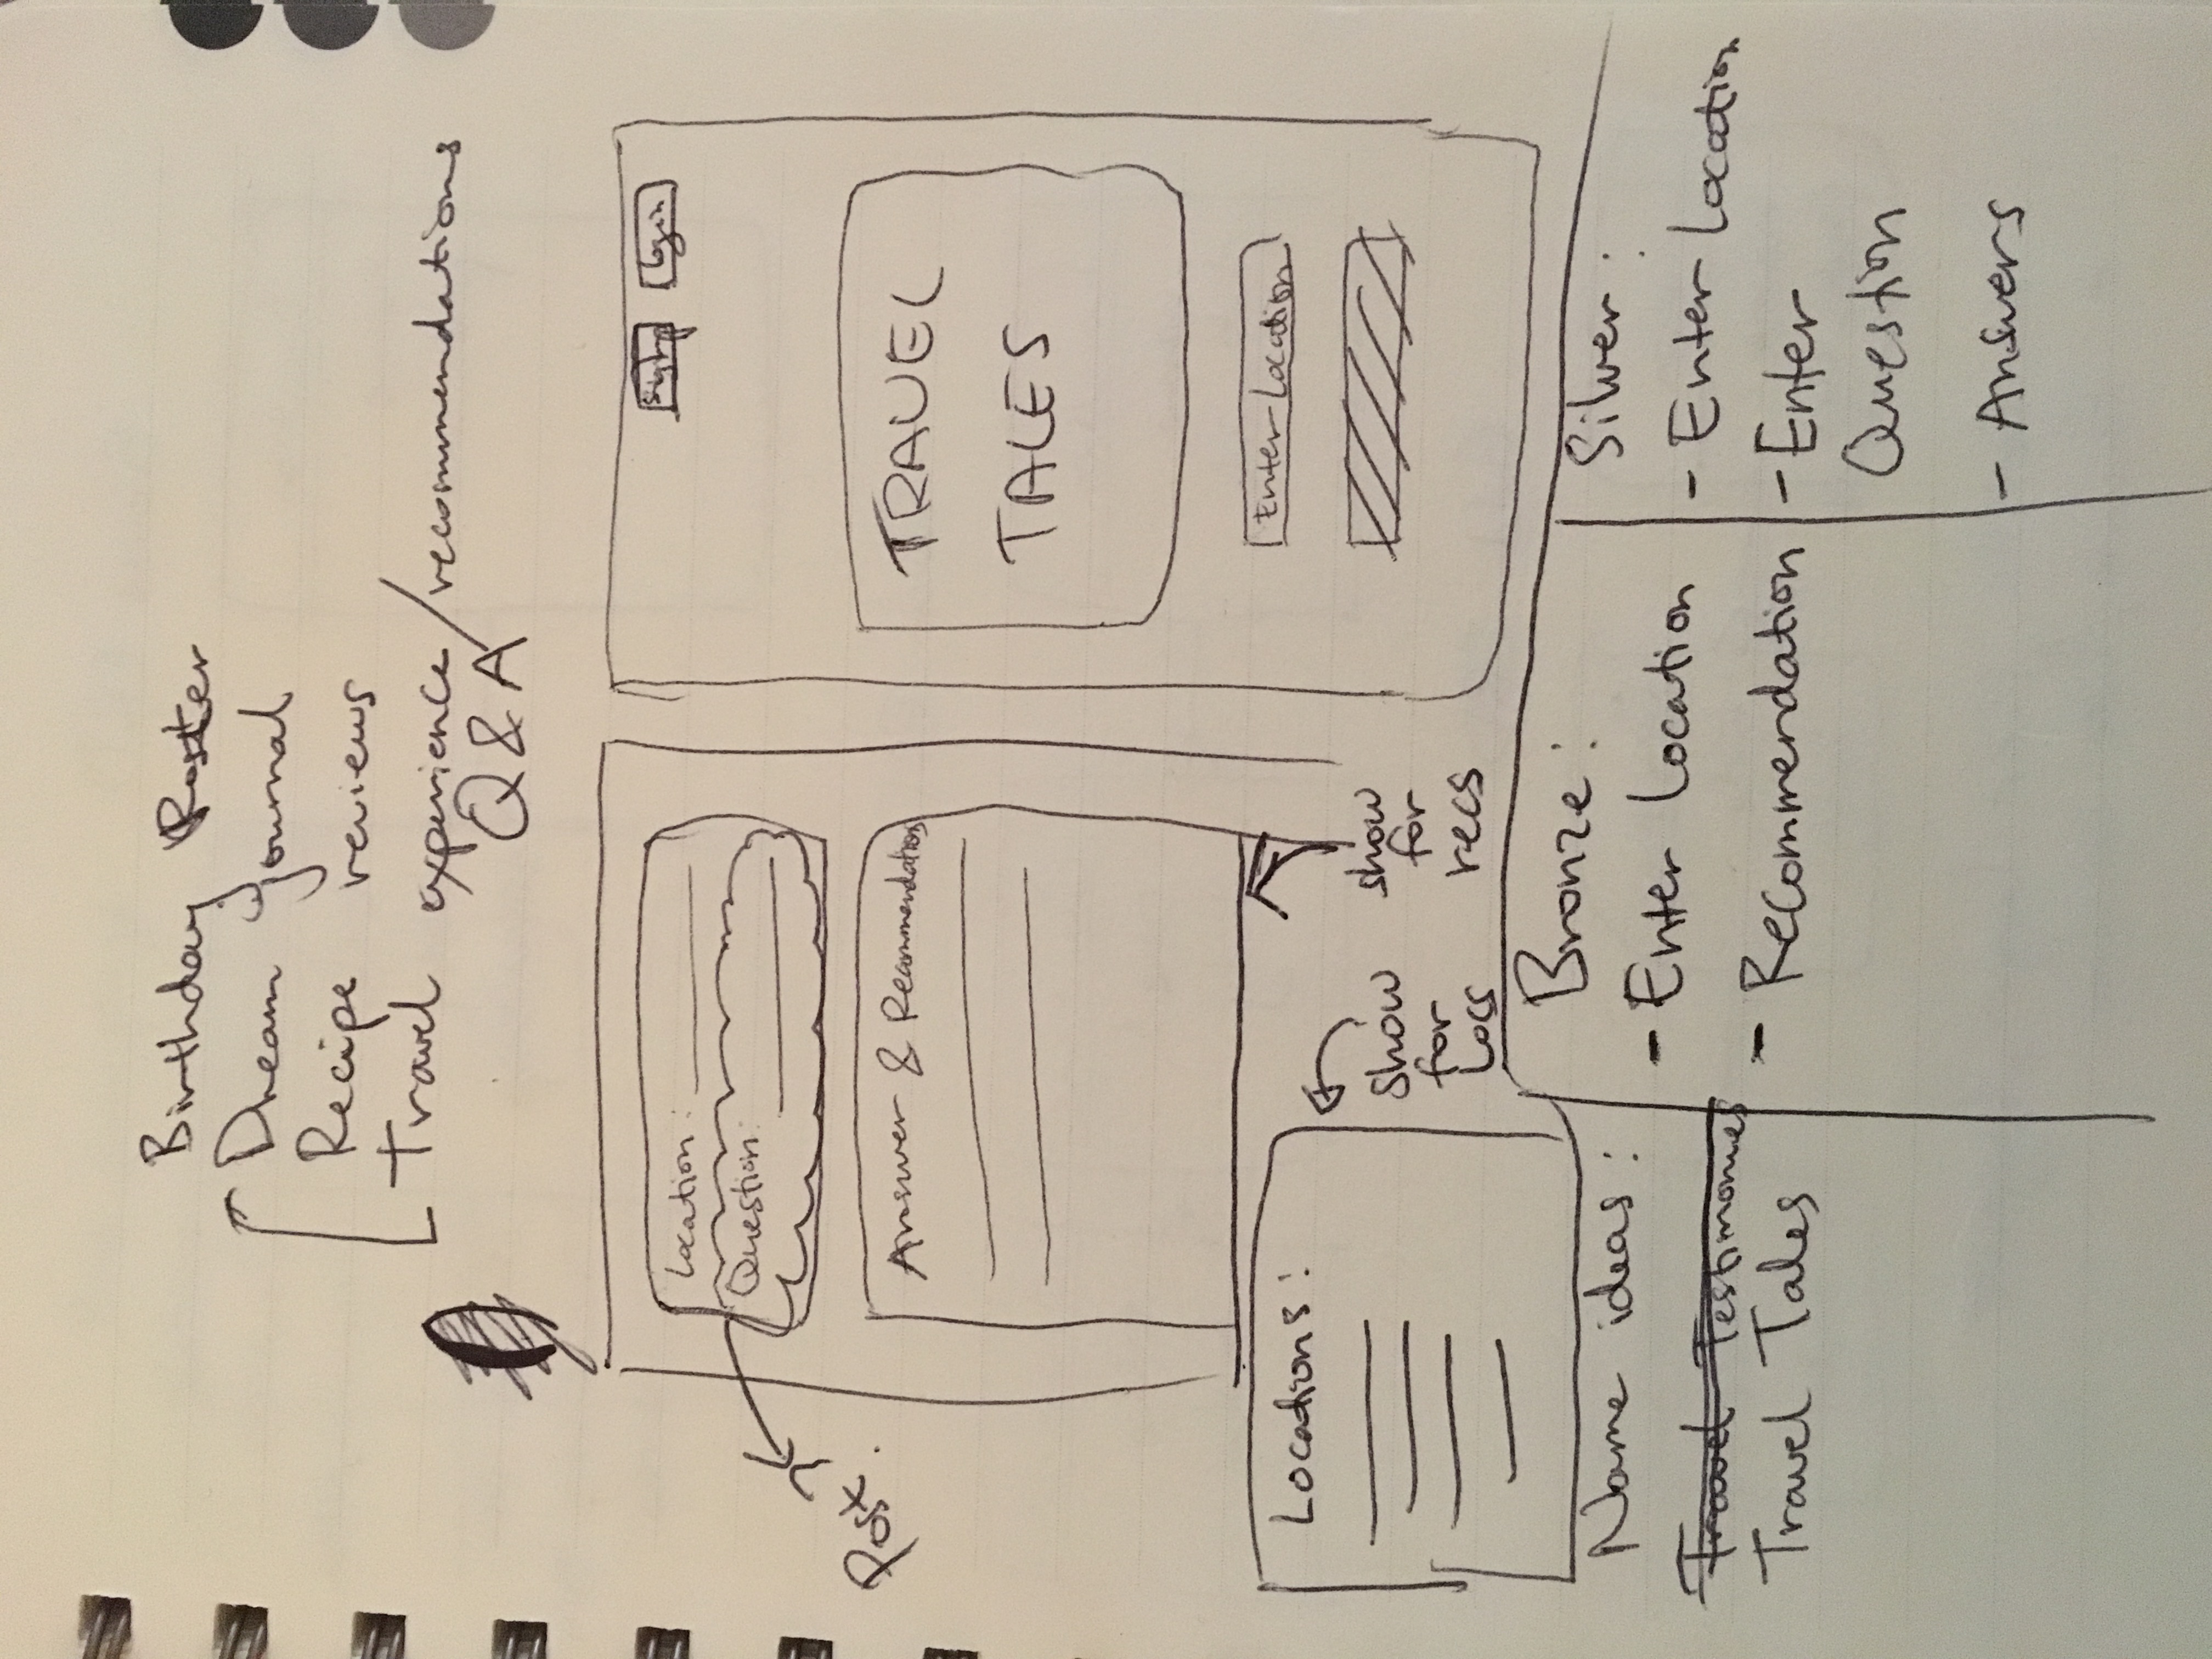 Birthday Roster
Dream journal
Recipe reviews
Travel experience/recommendations
Q&A
Location:
Question:
Post?
Answer & Recommendation
Signup
Login
TRAVEL
TALES
Enter Location
Locations:
show
for
locs
show
for
recs
Name ideas:
Travel Testimonies
Travel Tales
Bronze:
- Enter Location
- Recommendation
Silver:
- Enter Location
- Enter
Question
- Answers